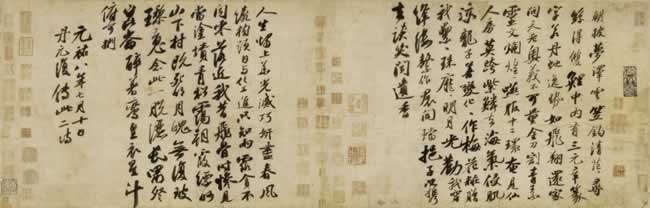 朝披夢澤雲笠釣青茫茫尋
絲得雙鯉中有三元章篆
字若丹蛇逸勢如飛翔還家
問天老奧義不可量金刀割青素
靈文爛煌煌嚥服十二環奄見仙
人房暮跨紫鱗去海氣侵肌
涼龍子善變化化作梅花粧贈
我纍纍珠靡靡明月光勸我穿
絳縷繫作裙間襠挹子以攜
去談笑聞遺香
人生燭上華光滅巧妍盡春風
繞樹頭日與化工進只知雨露貪不
聞零落近我昔飛骨時慘見
當塗墳青松靄朝霞縹緲
山下村既死明月魄無復玻
璃魂念此一脫灑長嘯祭
崑崙醉著鸞皇衣星斗
俯可捫
元祐八年七月十日
丹元復傳此二詩